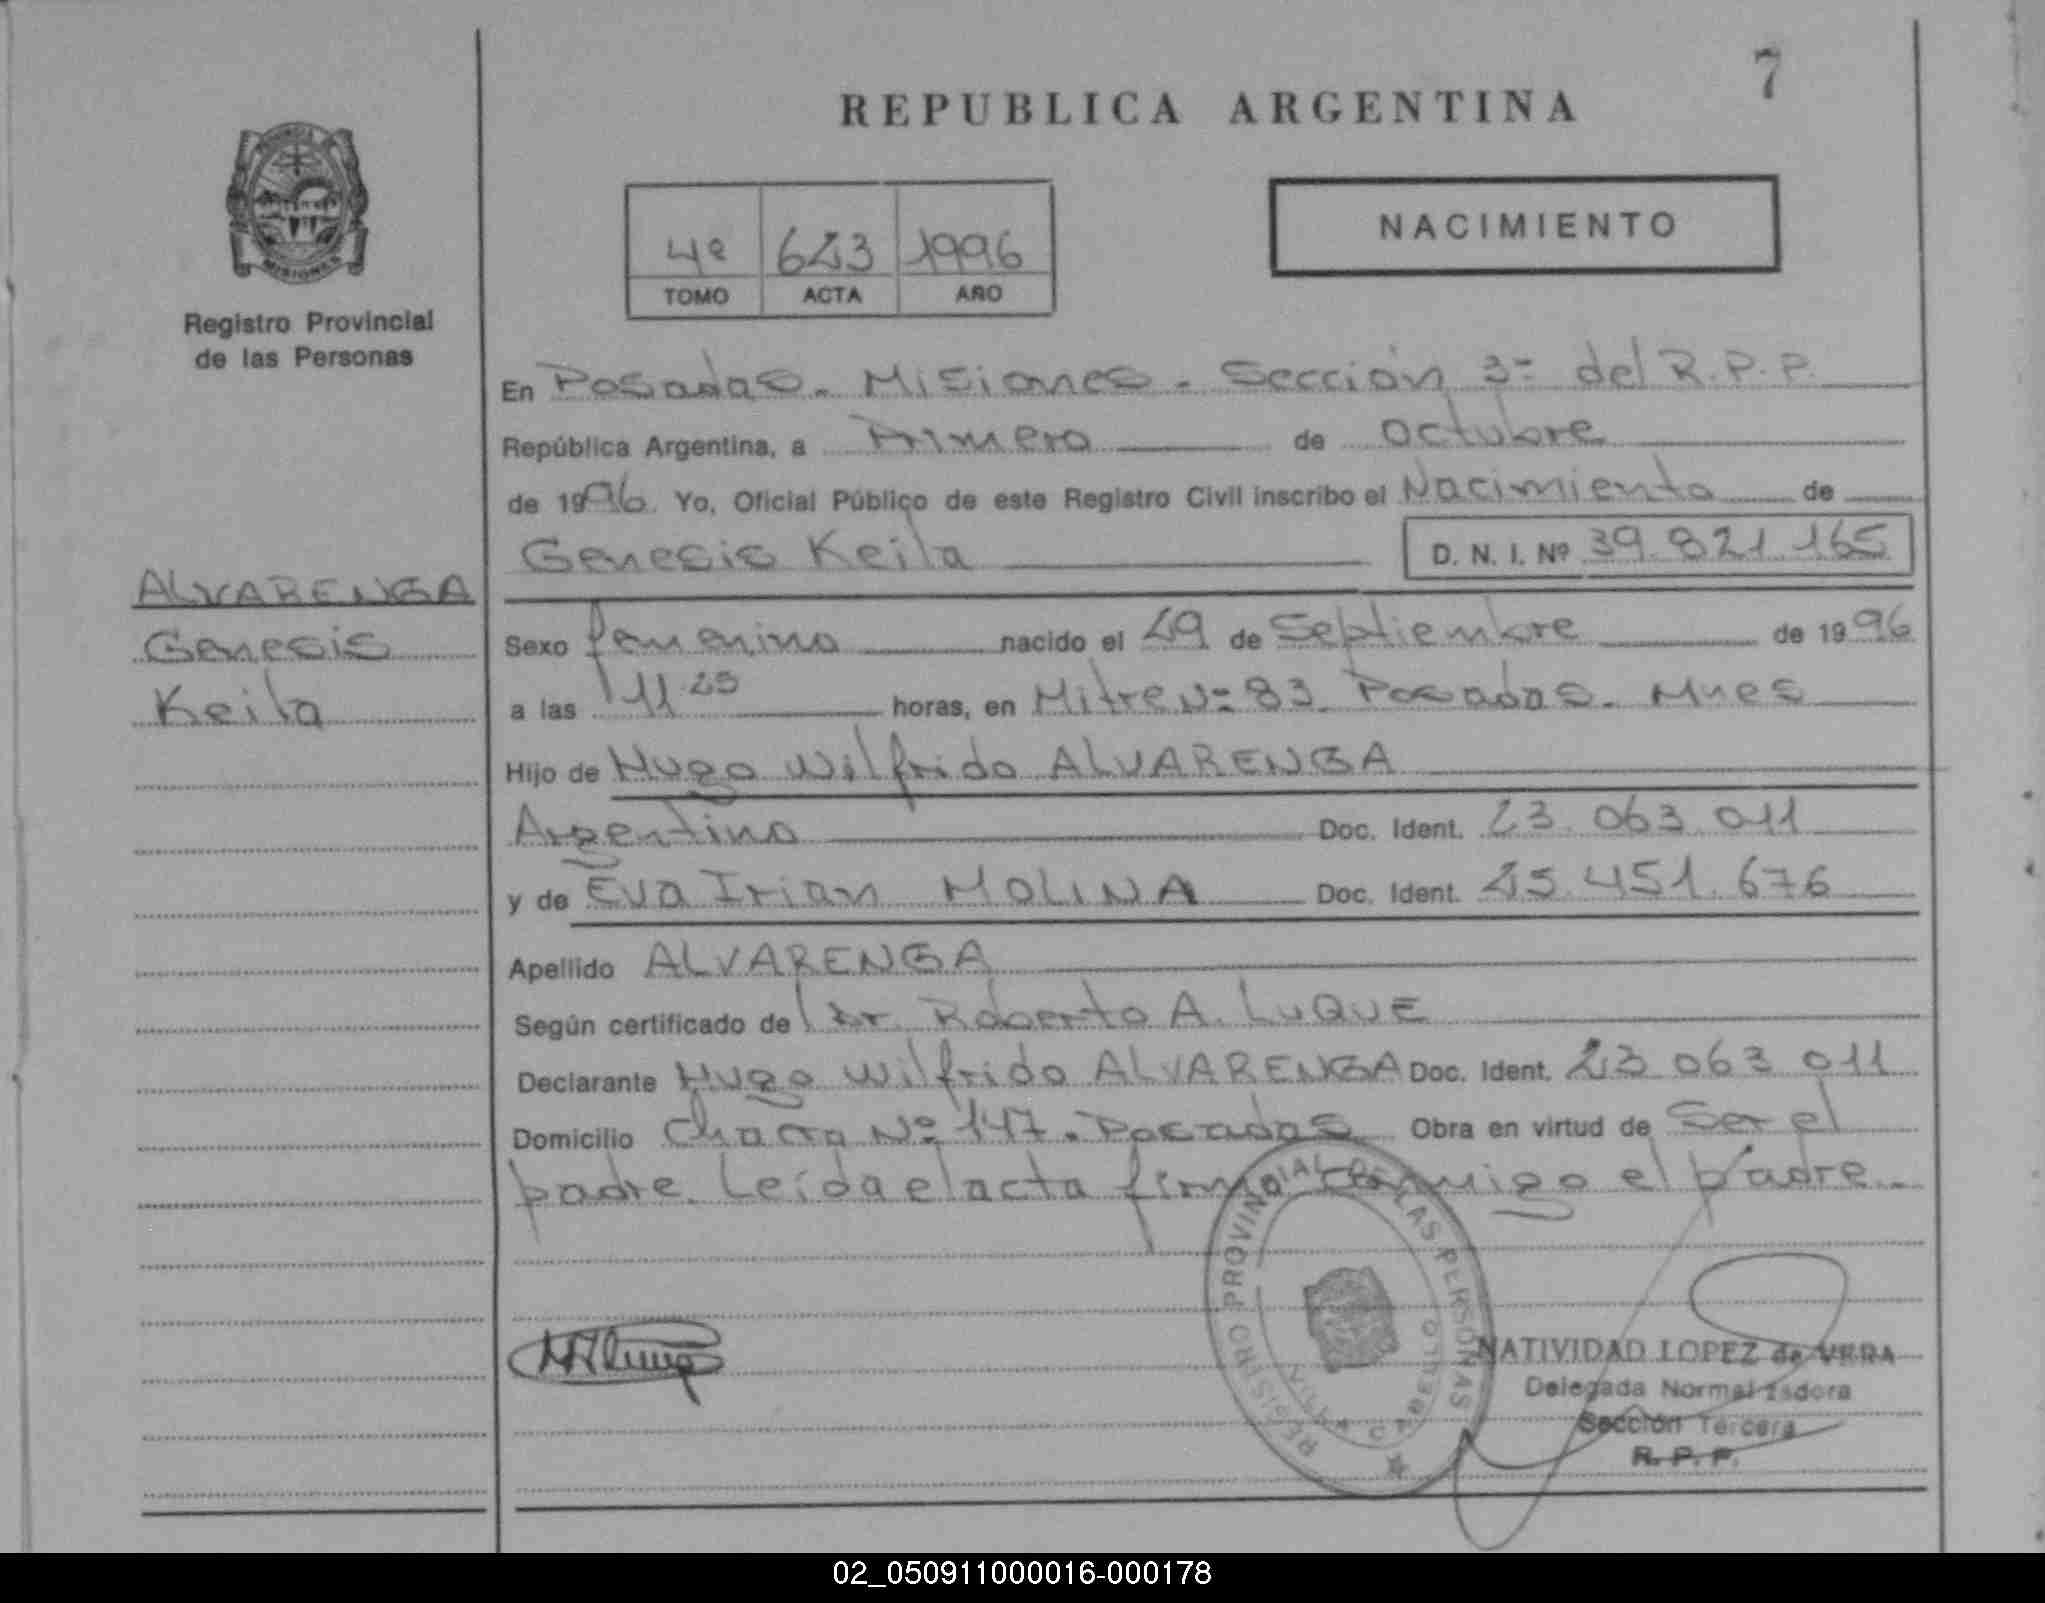 7
REPUBLICA ARGENTINA
MISIONES
Registro Provincial
de las Personas
4º 623 1996
TOMO ACTA AÑO
NACIMIENTO
En Posadas. Misiones. Sección 3= del R.P.P.
República Argentina, a Primero de octubre
de 1996. Yo, Oficial Público de este Registro Civil inscribo el Nacimiento de
Genesis Keila D. N. I. Nº 39.821.165
ALVARENGA
Genesis
Keila
Sexo femenino nacido el 29 de Septiembre de 1996
a las 11 25 horas, en Mitre Nº 83 Posadas. Mnes
Hijo de Hugo Wilfrido ALVARENGA
Argentino Doc. Ident. 23.063.011
y de Eva Irian MOLINA Doc. Ident. 25.451.676
Apellido ALVARENGA
Según certificado de Dr. Roberto A. LUQUE
Declarante Hugo Wilfrido ALVARENGA Doc. Ident. 23.063.011
Domicilio Chacra Nº 147. Posadas Obra en virtud de Ser el
padre. Leida el acta firma conmigo el padre.
REGISTRO PROVINCIAL DE LAS PERSONAS
NATIVIDAD LOPEZ de VERA
Delegada Normalizadora
Sección Tercera
R. P. P.
02_050911000016-000178